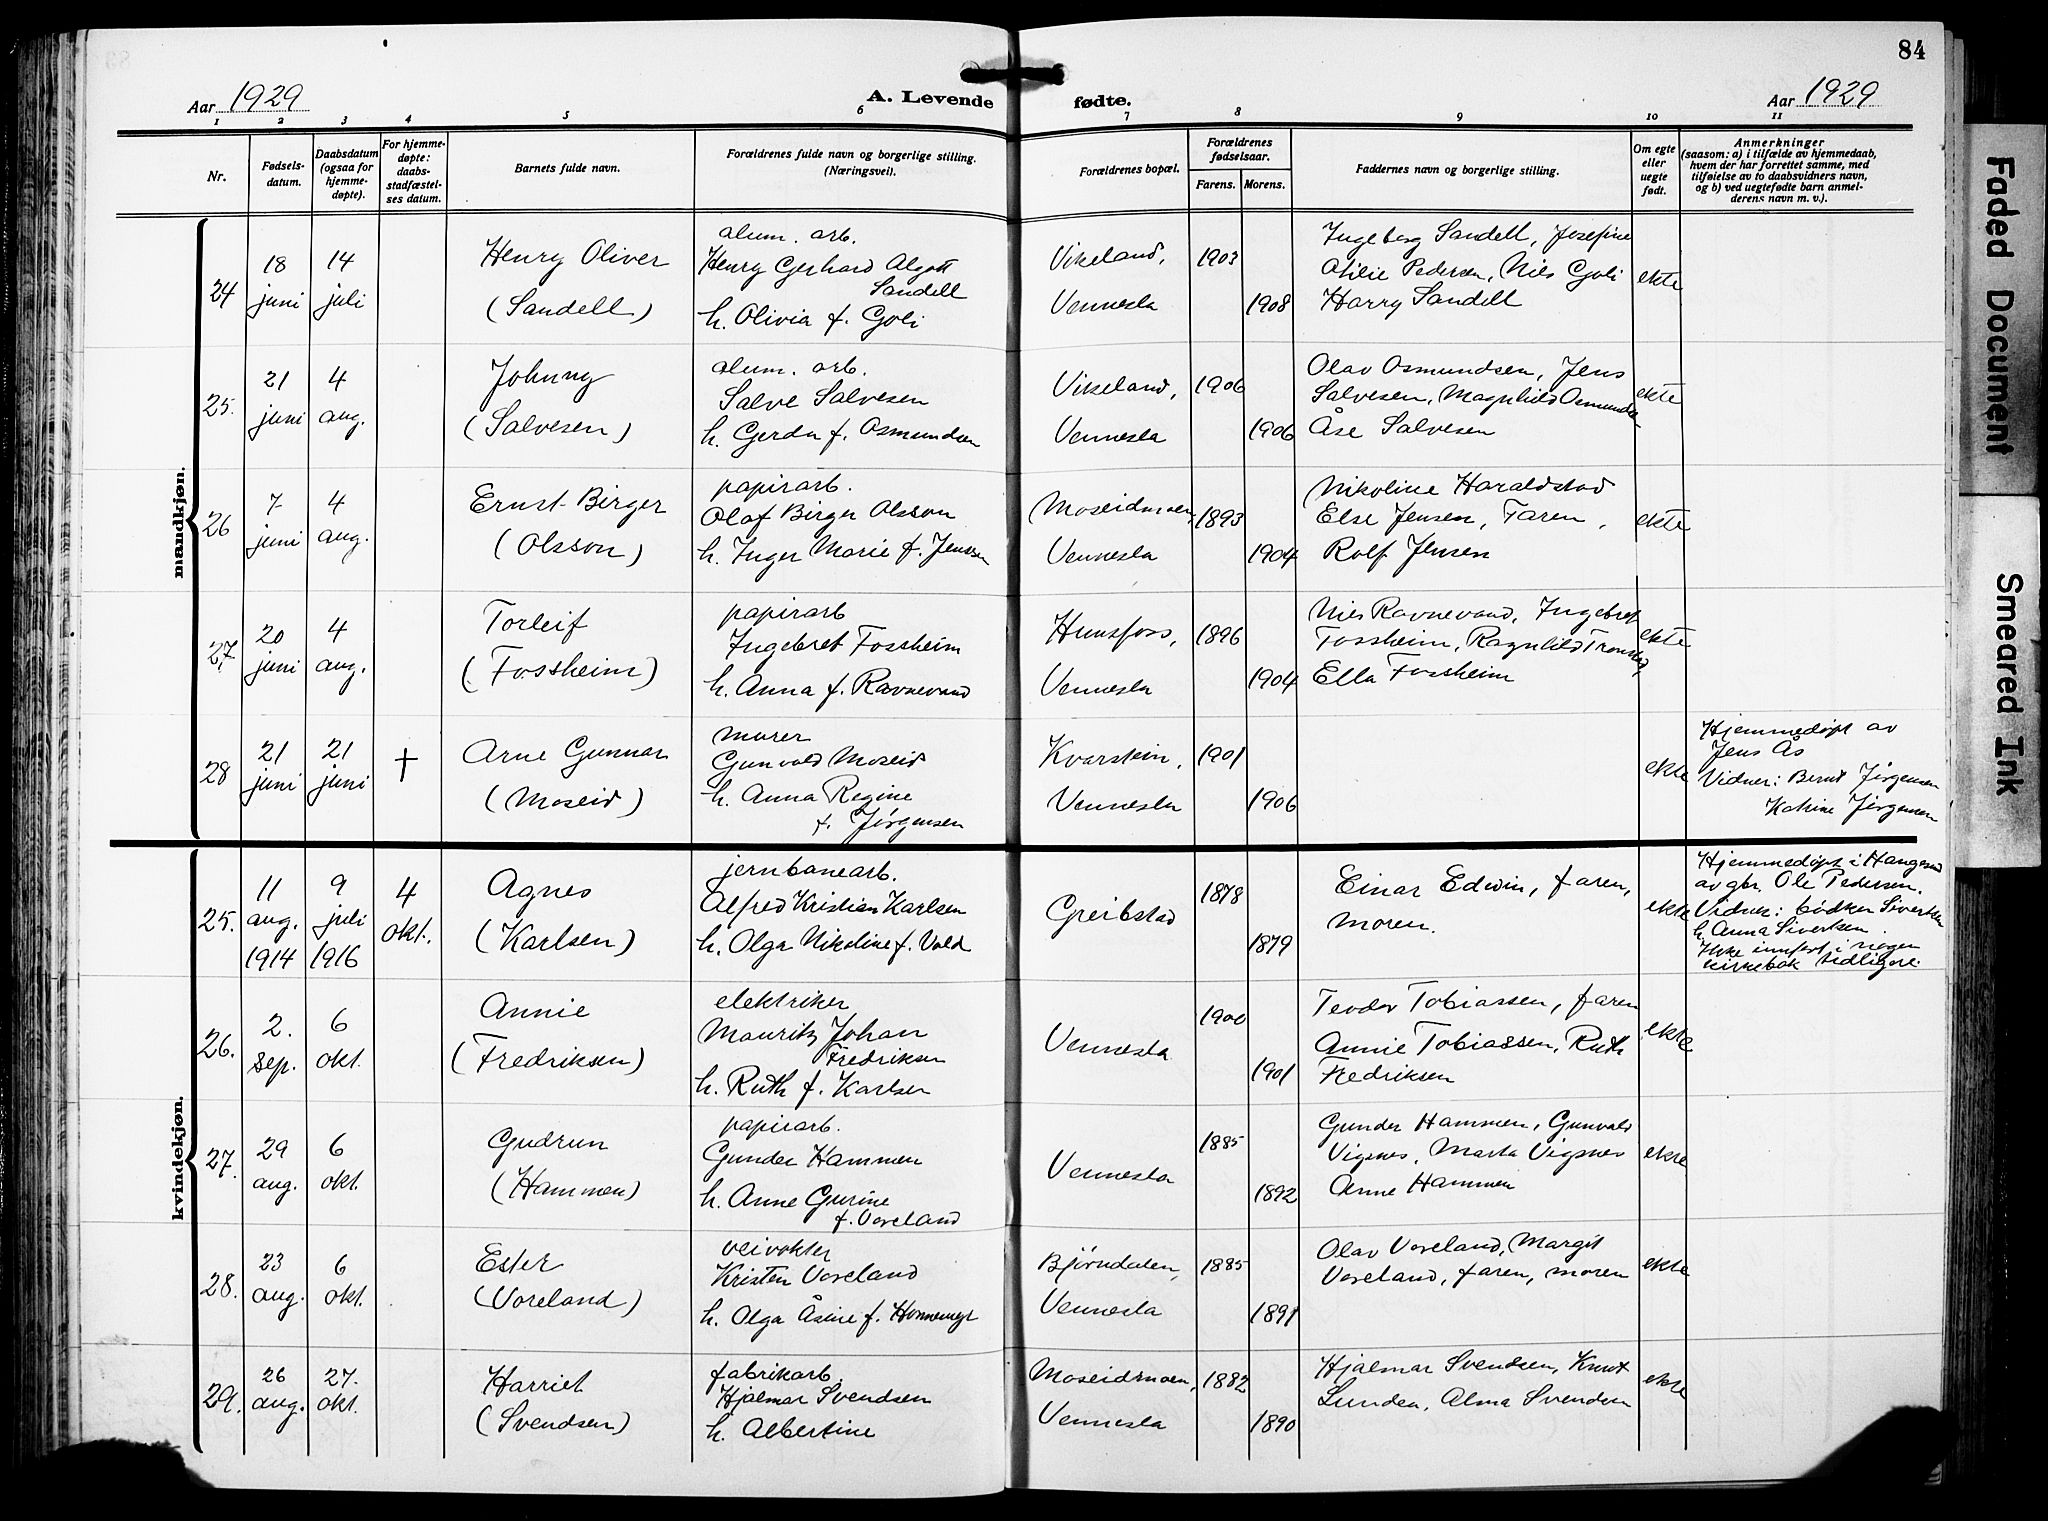 84
Aar 1929
A. Levende fødte.
Aar 1929
1 2 3 4 5 6 7 8 9 10 11
Nr.
Fødsels-
datum.
Daabsdatum
(ogsaa for
hjemme-
døpte).
For hjemme-
døpte:
daabs-
stadfæstel-
ses datum.
Barnets fulde navn.
Forældrenes fulde navn og borgerlige stilling.
(Næringsvei).
Forældrenes bopæl.
Forældrenes
fødselsaar.
Farens. Morens.
Faddernes navn og borgerlige stilling.
Om egte
eller
uegte
født.
Anmerkninger
(saasom: a) i tilfælde av hjemmedaab,
hvem der har forrettet samme, med
tilføielse av to daabsvidners navn,
og b) ved uegtefødte barn anmel-
derens navn m. v.).
mandkjøn.
24
18
juni
14
juli
Henry Oliver
(Sandell)
alum. arb.
Henry Gerhard Algott
Sandell
h. Olivia f. Goli
Vikeland,
Vennesla
1903
1908
Ingeborg Sandell, Josefine
Otilie Pedersen, Nils Goli
Harry Sandell
ekte
25.
21
juni
4
aug.
Johnny
(Salvesen)
alum. arb.
Salve Salvesen
h. Gerda f. Osmundsen
Vikeland,
Vennesla
1906
1906
Olav Osmundsen, Jens
Salvesen, Magnhild Osmundsen
Åse Salvesen
ekte
26
7
juni
4
aug.
Ernst Birger
(Olsson)
papirarb.
Olaf Birger Olsson
h. Inger Marie f. Jensen
Moseidmoen,
Vennesla
1893
1904
Nikoline Haraldstad
Else Jensen, Faren,
Rolf Jensen
ekte
27.
20
juni
4
aug.
Torleif
(Fossheim)
papirarb
Ingebret Fossheim
h. Anna f. Ravnevand
Hunsfoss,
Vennesla
1896
1904
Nils Ravnevand, Ingebret
Fossheim, Ragnhild Tronstad,
Ella Fossheim
ekte
28
21
juni
21
juni
†
Arne Gunnar
(Moseid)
murer
Gunvald Moseid
h. Anna Regine
f. Jørgensen
Kvarstein,
Vennesla
1901
1906
ekte
Hjemmedøpt av
Jens Ås
Vidner: Bernt Jørgensen
Katrine Jørgensen
kvindekjøn.
25.
11
aug.
1914
9
juli
1916
4
okt.
Agnes
(Karlsen)
jernbanearb.
Alfred Kristian Karlsen
h. Olga Nikoline f. Vold
Greibstad
1878
1879
Einar Edwin, faren,
moren.
ekte
Hjemmedøpt i Haugesund
av gbr. Ole Pedersen.
Vidner: bødker Sivertsen
h. Anna Sivertsen.
Ikke innført i nogen
kirkebok tidligere.
26.
2.
sep.
6
okt.
Annie
(Fredriksen)
elektriker
Mauritz Johan
Fredriksen
h. Ruth f. Karlsen
Vennesla
1900
1901
Teodor Tobiassen, faren
Annie Tobiassen, Ruth
Fredriksen
ekte
27.
29
aug.
6
okt.
Gudrun
(Hammen)
papirarb.
Gunder Hammen
h. Anne Gurine
f. Voreland
Vennesla
1885
1892
Gunder Hammen, Gunvald
Vigsnes, Marta Vigsnes
Anne Hammen
ekte
28.
23
aug.
6
okt.
Ester
(Voreland)
veivokter
Kristen Voreland
h. Olga Åsine f. Honnemyr
Bjørndalen,
Vennesla
1885
1891
Olav Voreland, Margit
Voreland, faren, moren
ekte
29.
26
aug.
27.
okt.
Harriet
(Svendsen)
fabrikarb.
Hjalmar Svendsen
h. Albertine
Moseidmoen,
Vennesla
1882
1890
Hjalmar Svendsen, Knut
Lunden, Alma Svendsen
ekte
Faded Document
Smeared Ink